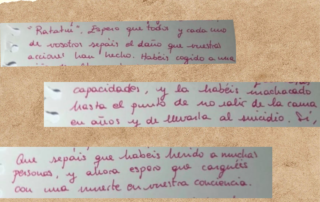 "Ratatui". Espero que todos y cada uno
de vosotros sepáis el daño que vuestras
acciones han hecho. Habéis cogido a una
capacidades, y la habéis machacado
hasta el punto de no salir de la cama
en años y de llevarla al suicidio. Sí,
Que sepáis que habéis herido a muchas
personas, y ahora espero que carguéis
con una muerte en vuestra conciencia.